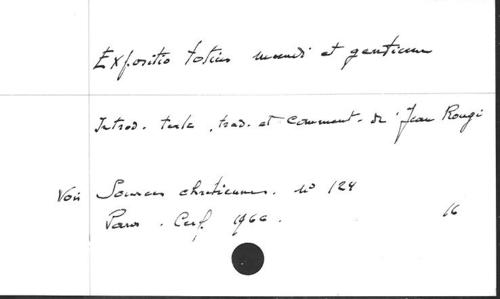 Expositio totius mundi et gentium
Introd. texte, trad. et comment. de Jean Rougé
Voir Sources chrétiennes. n° 124
Paris. Cerf. 1966.
16